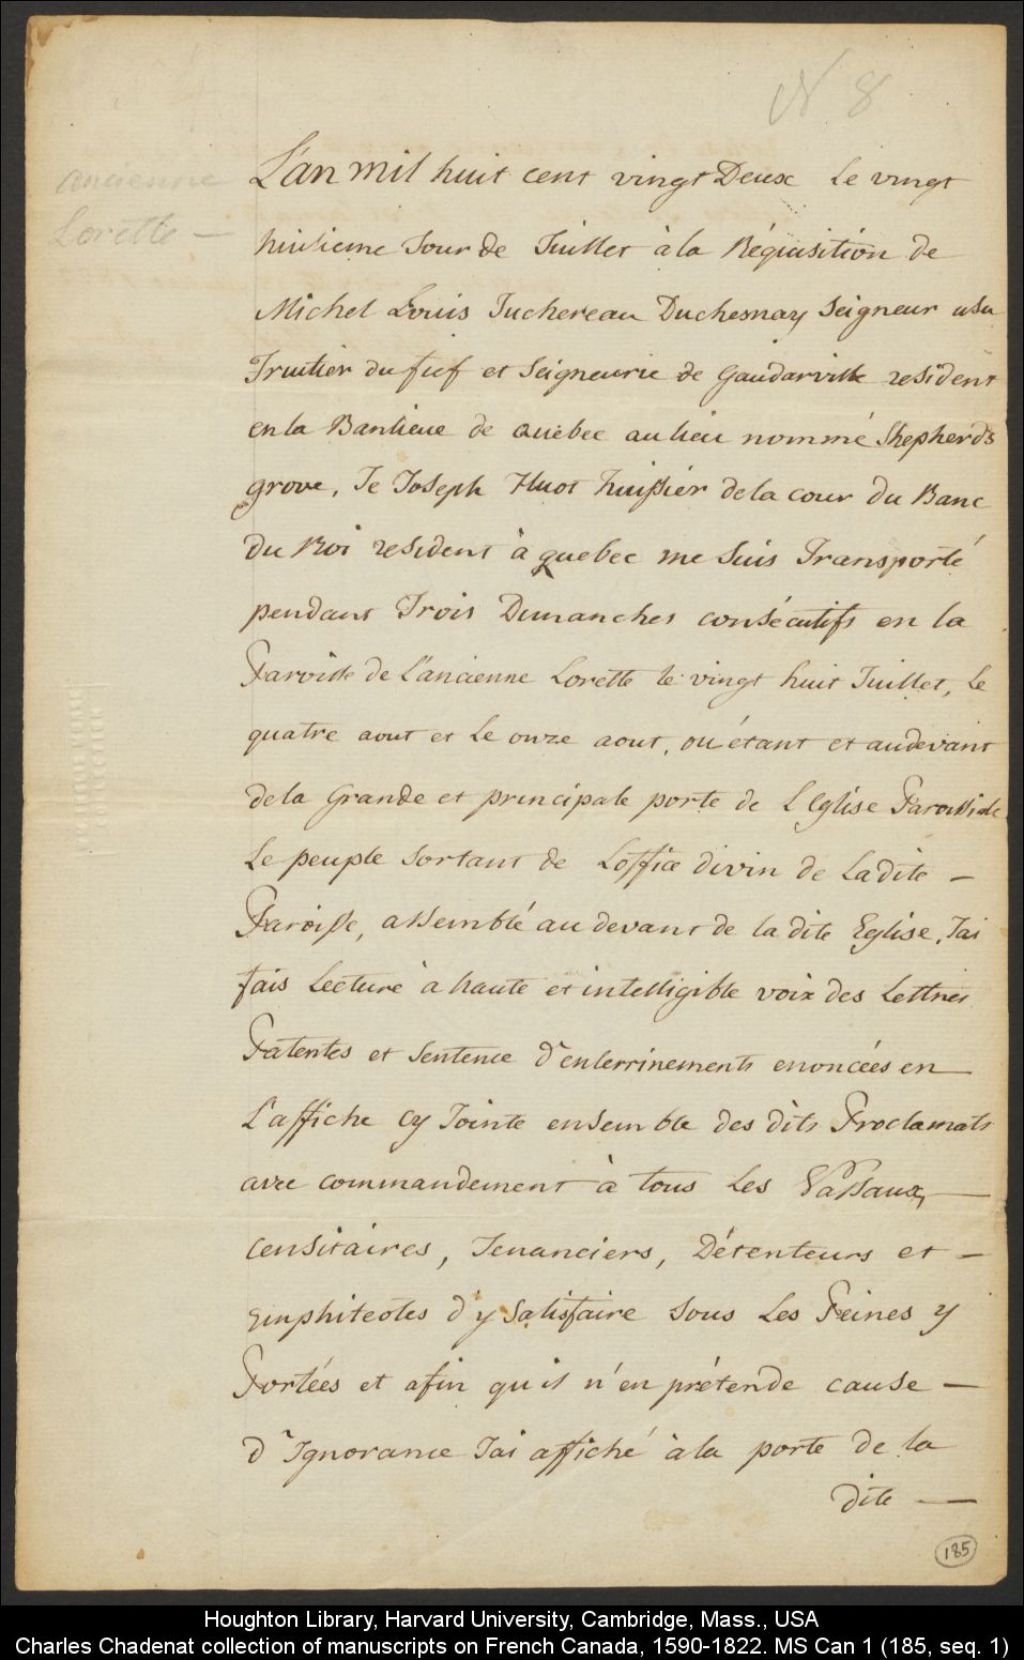 N 8
ancienne
Lorette —
L'an mil huit cent vingt Deux Le vingt
huitieme Jour de Juillet à la Réquisition de
Michel Louis Juchereau Duchesnay Seigneur usu
Fruitier du fief et Seigneurie de Gaudarville resident
en la Banlieue de Quebec au lieu nommé Shepherd's
grove, Je Joseph Huot huissier de la cour du Banc
Du Roi resident à quebec me Suis Transporté
pendant Trois Dimanches consécutifs en la
Paroisse de L'ancienne Lorette le vingt huit Juillet, Le
quatre aout et Le onze aout, ou étant et audevant
dela Grande et principale porte de L'Eglise Paroissiale
Le peuple Sortant de L'office divin de Ladite —
Paroisse, assemblé au devant de la dite Eglise, Jai
fais Lecture à haute et intelligible voix des Lettres
Patentes et Sentence d'enterrinements enoncées en
L'affiche Cy Jointe ensemble des dits Proclamats
avec commandement à tous Les Vassaux, —
Censitaires, Tenanciers, Détenteurs et —
Emphiteotes d'y Satisfaire Sous Les Peines y
Portées et afin qu'il n'en prétende cause —
d'Ignorance Jai affiché à la porte de la
dite —
185
Houghton Library, Harvard University, Cambridge, Mass., USA
Charles Chadenat collection of manuscripts on French Canada, 1590-1822. MS Can 1 (185, seq. 1)